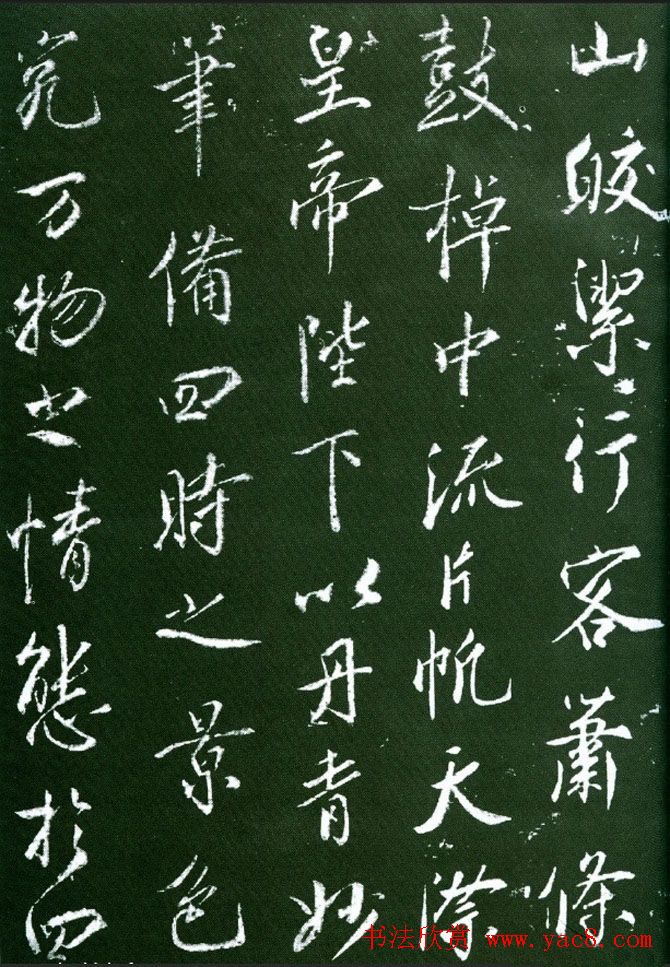 山皎潔行客蕭條
鼓棹中流片帆天際
皇帝陛下以丹青妙
筆備四時之景色
究万物之情態於四
书法欣赏 www.yac8.com